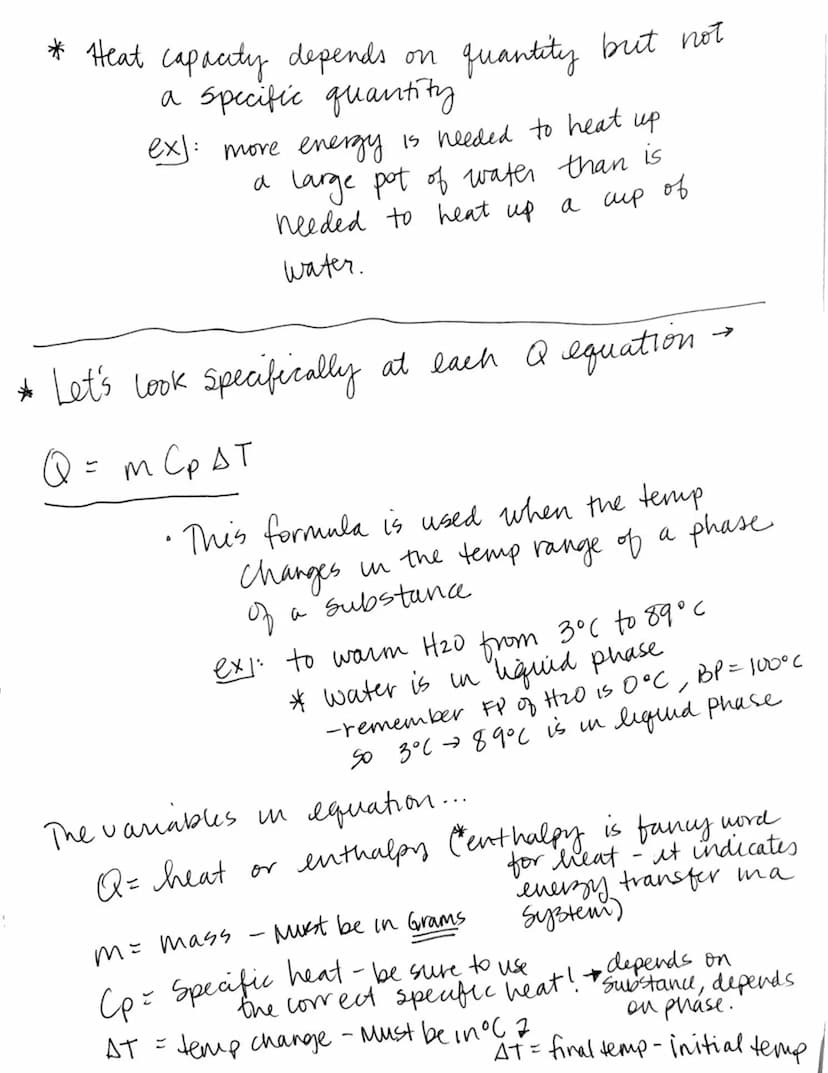 * Heat capacity depends on quantity but not
a specific quantity
ex]: more energy is needed to heat up
a large pot of water than is
needed to heat up a cup of
water.
* Let's look specifically at each Q equation →
Q = m Cp ΔT
• This formula is used when the temp
changes in the temp range of a phase
of a substance
ex]: to warm H2O from 3°C to 89°C
* water is in liquid phase
- remember FP of H2O is 0°C, BP = 100°C
so 3°C → 89°C is in liquid phase
The variables in equation...
Q = heat or enthalpy (*enthalpy is fancy word
for heat - it indicates
energy transfer in a
system)
m = mass - Must be in Grams
Cp = Specific heat - be sure to use
the correct specific heat! → depends on
substance, depends
on phase.
ΔT = temp change - Must be in °C
ΔT = final temp - initial temp